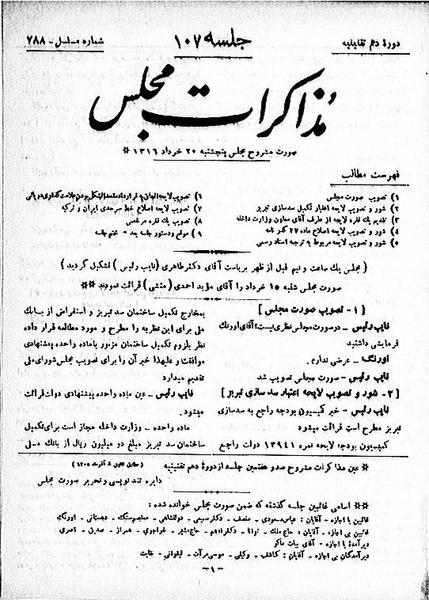 دورهٔ دهم تقنینیه
جلسه ۱۰۷
شماره مسلسل - ۲۸۸
مذاکرات مجلس
صورت مشروح مجلس پنجشنبه ۲۰ خرداد ۱۳۱۶ *
فهرست مطالب
۱) تصویب صورت مجلس
۲) شور و تصویب لایحه اعتبار تکمیل سدسازی تبریز
۳) تقدیم یک فقره از طرف آقای معاون وزارت داخله
۴) شور و تصویب لایحه اصلاح ماده ۲۷ گمر نامه
۵) شور و تصویب لایحه مربوط به ترجمه اسناد رسمی
۶) تصویب لایحه الحاق
۷) تصویب لایحه اصلاح خط سرحدی ایران و ترکیه
۸) تصویب یک فقره مرخصی
۹) موقع و دستور جلسه بعد - ختم جلسه
( مجلس یک ساعت و نیم قبل از ظهر بریاست آقای دکتر طاهری (نایب رئیس) تشکیل گردید )
صورت مجلس شنبه ۱۵ خرداد را آقای مؤید احمدی (منشی) قرائت نمودند **
[ ۱ - تصویب صورت مجلس ]
نایب رئیس - در صورت مجلس نظری نیست؟ آقای اورنگ
فرمایشی داشتید
اورنگ - عرضی ندارم.
نایب رئیس - صورت مجلس تصویب شد
[ ۲ - شور و تصویب لایحه اعتبار سد سازی تبریز ]
نایب رئیس - خبر کمیسیون بودجه راجع به سدسازی
تبریز مطرح است قرائت میشود
کمیسیون بودجه لایحه نمره ۱۳۹۴۱ دولت راجع
بمخارج تکمیل ساختمان سد تبریز و استقراض از بانک
ملی برای این نظریه را مطرح و مورد مطالعه قرار داده
نظر بلزوم تکمیل ساختمان مزبور با ماده واحده پیشنهادی
موافقت و علیهذا خبر آن را برای تصویب مجلس شورای ملی
تقدیم میدارد
نایب رئیس - عین ماده واحده پیشنهادی دولت قرائت
میشود.
ماده واحده - وزارت داخله مجاز است برای تکمیل
ساختمان سد تبریز مبلغ دو میلیون ریال از بانک ملی
* عین مذاکرات مشروح صد و هفتمین جلسه از دورهٔ دهم تقنینیه
دایره تند نویسی و تحریر صورت مجلس
** اسامی غائبین جلسه گذشته که ضمن صورت مجلس خوانده شده:
غائبین با اجازه - آقایان: عباس مسعودی - منصف - دکتر سمیعی - دولتشاهی - معتصم سنگ - دهستانی - اورنگ
غائبین بی اجازه - آقایان: حاج ملک - توانا - دکتر ادهم - حاج مشیر - خواجوی - همراز - صدیق - ناصری
دیر آمده با اجازه - آقای بیات ماکو
دیر آمدگان بی اجازه - آقایان: کاشف - وکیلی - موسی مرآت - لیقوانی - غایت
- ۱ -